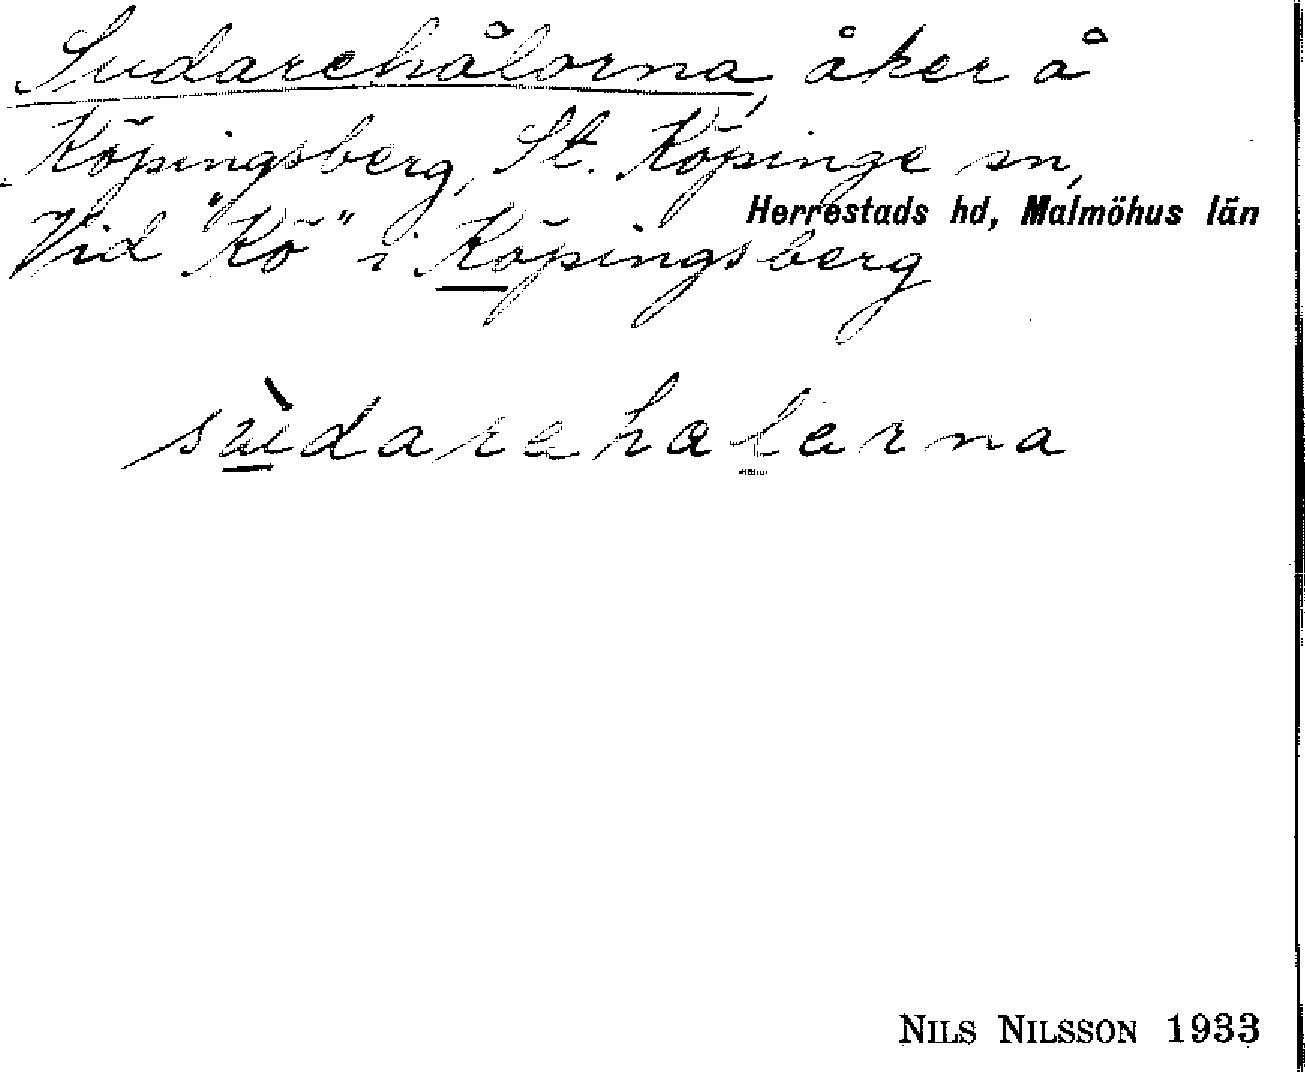 Sudarehålorna, åker å
Köpingsberg, St. Köpinge sn,
Herrestads hd, Malmöhus län
Vid "Kö" i Köpingsberg
sùdarehalarna
NILS NILSSON 1933